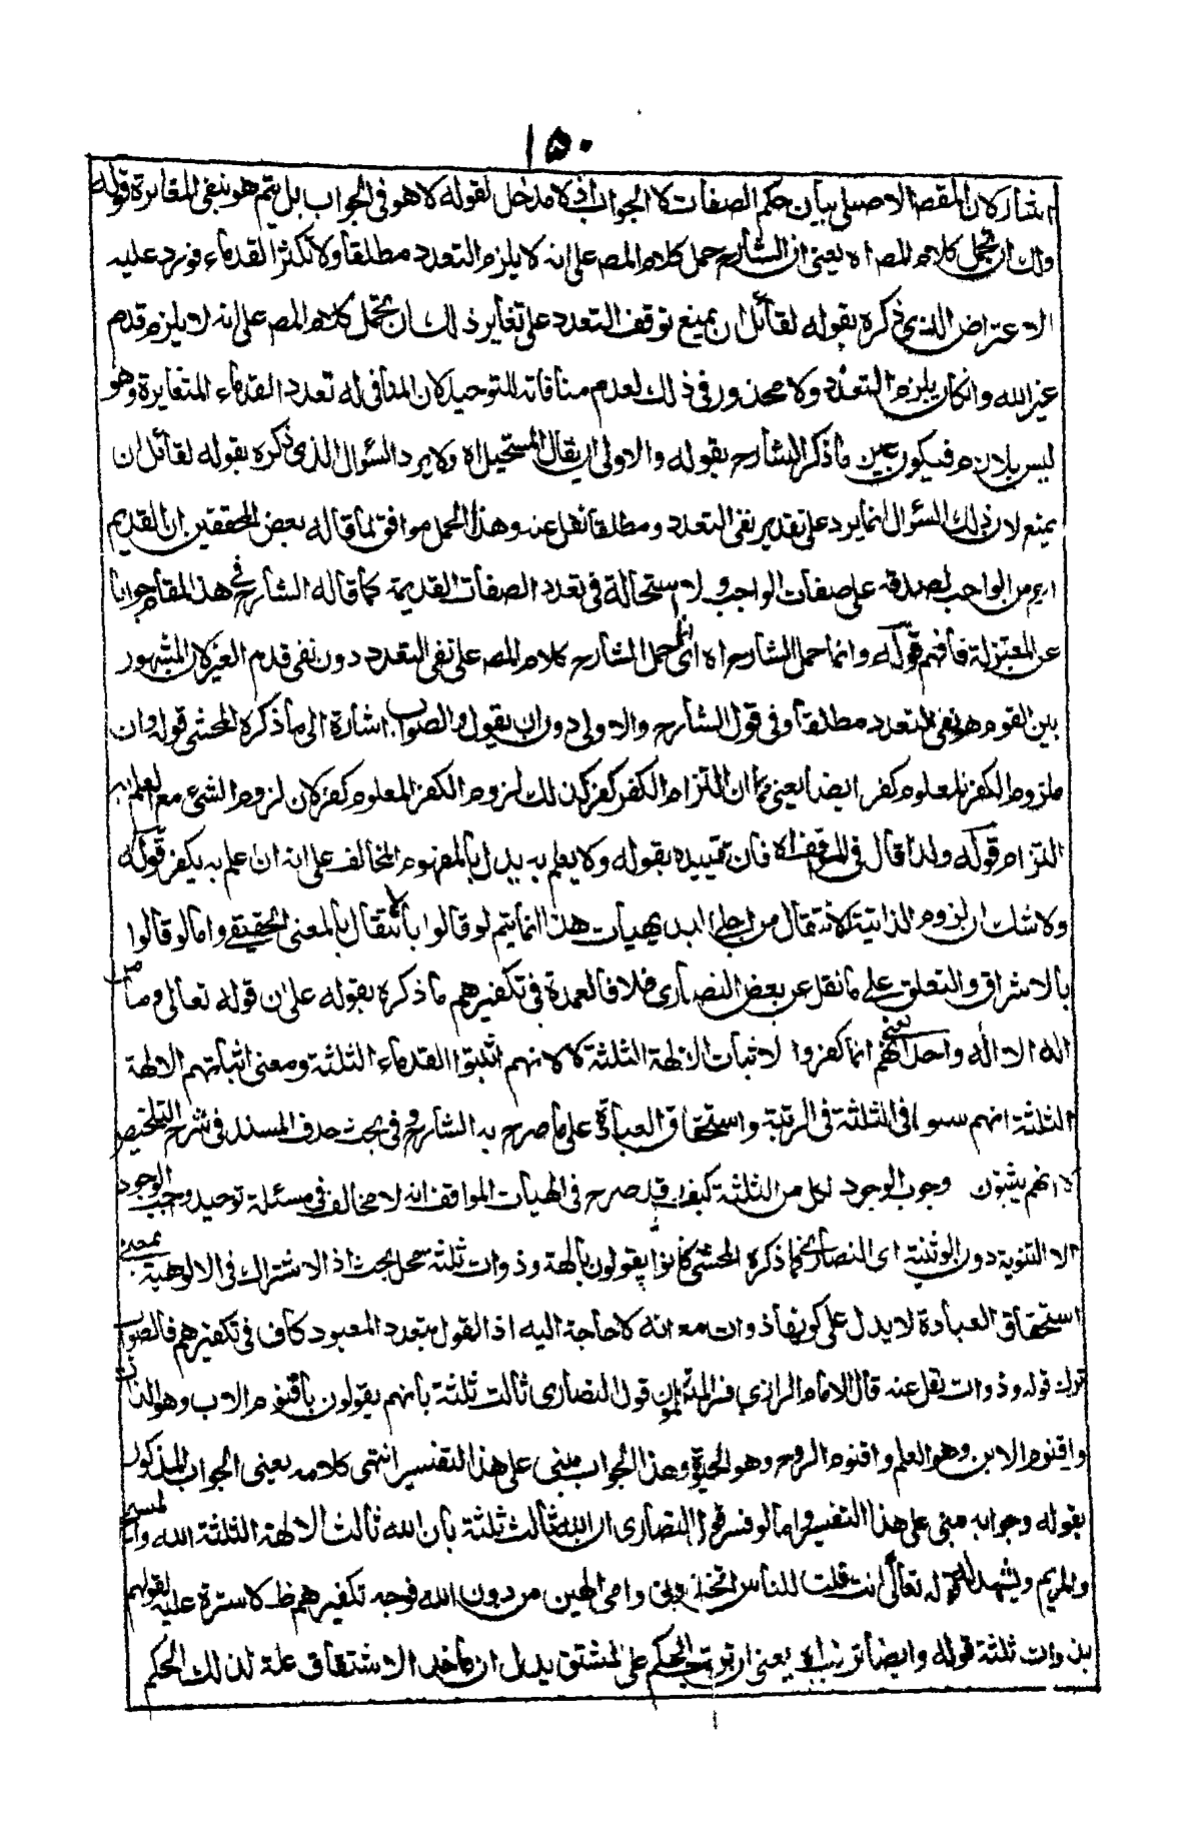 ١٥٠
اشار لان المقصد الاصلي بيان حكم الصفات لا الجواب اذ لا مدخل لقوله لا هو في الجواب بل يتم هو بنفي المغايرة قوله
ولك ان تحمل كلام المص اه يعني ان الشارح حمل كلام المص على انه لا يلزم التعدد مطلقا ولا تكثر القدماء فورد عليه
الاعتراض الذي ذكره بقوله لقائل ان يمنع توقف التعدد على تغاير ذلك ان تحمل كلام المص على انه لا يلزم قدم
غير الله وان كان يلزم التعدد ولا محذور في ذلك لعدم منافاته للتوحيد لان المنافي له تعدد القدماء المتغايرة وهو
ليس بلازم فيكون عين ما ذكر الشارح بقوله والاولى ان يقال المستحيل اه ولا يرد السؤال الذي ذكره بقوله لقائل ان
يمنع لان ذلك السؤال انما يرد على تقدير نفي التعدد ومطلقا نقل عنه وهذا الحمل موافق لما قاله بعض المحققين ان القديم
اعم من الواجب لصدقه على صفات الواجب ولا استحالة في تعدد الصفات القديمة كما قاله الشارح في هذا المقام جوابا
عن المعتزلة فافهم قوله وانما حمل الشارح اه اي انما حمل الشارح كلام المص على نفي التعدد دون نفي قدم الغير لان المشهور
بين القوم هو نفي التعدد مطلقا وفي قول الشارح والاولى دون ان يقول والصواب اشارة الى ما ذكره المحشي قوله وان
ملزوم الكفر المعلوم كفر ايضا يعني كما ان التزام الكفر كفر كذلك لزوم الكفر المعلوم كفر لان لزوم الشئ مع العلم به
التزام قوله ولذا قال في المواقف اه فان تقييده بقوله ولا يعلم به يدل بالمفهوم المخالف على انه ان علم به يكفر قوله
ولا شك ان لزوم الذاتية للانتقال من اجلى البديهيات هذا انما يتم لو قالوا بالانتقال بالمعنى الحقيقي واما لو قالوا
بالاشراق والتعلق على ما نقل عن بعض النصارى فلا فالعمدة في تكفيرهم ما ذكره بقوله على ان قوله تعالى وما من
اله الا اله واحد يعني انهم انما كفروا لاثبات الالهة الثلثة لا لانهم اثبتوا القدماء الثلثة ومعنى اثباتهم الالهة
الثلثة انهم سووا في الثلثة في الرتبة واستحقاق العبادة على ما صرح به الشارح في بحث حذف المسند في شرح التلخيص
لا انهم يثبتون وجوب الوجود لكل من الثلثة كيف وقد صرح في الهيات المواقف انه لا مخالف في مسئلة توحيد وجب الوجود
الا الثنوية دون الوثنية اي النصارى كما ذكره المحشي كانوا يقولون بآلهة وذوات ثلثة محل بحث اذ الاشتراك في الالوهية بمعنى
استحقاق العبادة لا يدل على كونها ذوات مع انه لا حاجة اليه اذ القول بتعدد المعبود كاف في تكفيرهم فالصواب
ترك قوله وذوات نقل عنه قال الامام الرازي فسر المتكلمون قول النصارى ثالث ثلثة بانهم يقولون باقنوم الاب وهو الذات
واقنوم الابن وهو العلم واقنوم الروح وهو الحيوة وهذا الجواب مبني على هذا التفسير انتهى كلامه يعني الجواب المذكور
بقوله وجوابه مبني على هذا التفسير واما لو فسر قول النصارى ان الله ثالث ثلثة بان الله ثالث الالهة الثلثة الله والمسيح
والمريم ويشهد له قوله تعالى أانت قلت للناس اتخذوني وامي الهين من دون الله فوجه تكفيرهم ظ لا سترة عليه لقولهم
بذوات ثلثة قوله وايضا ترتب اه يعني ان ترتب الحكم على المشتق يدل ان مأخذ الاشتقاق علة لذلك الحكم